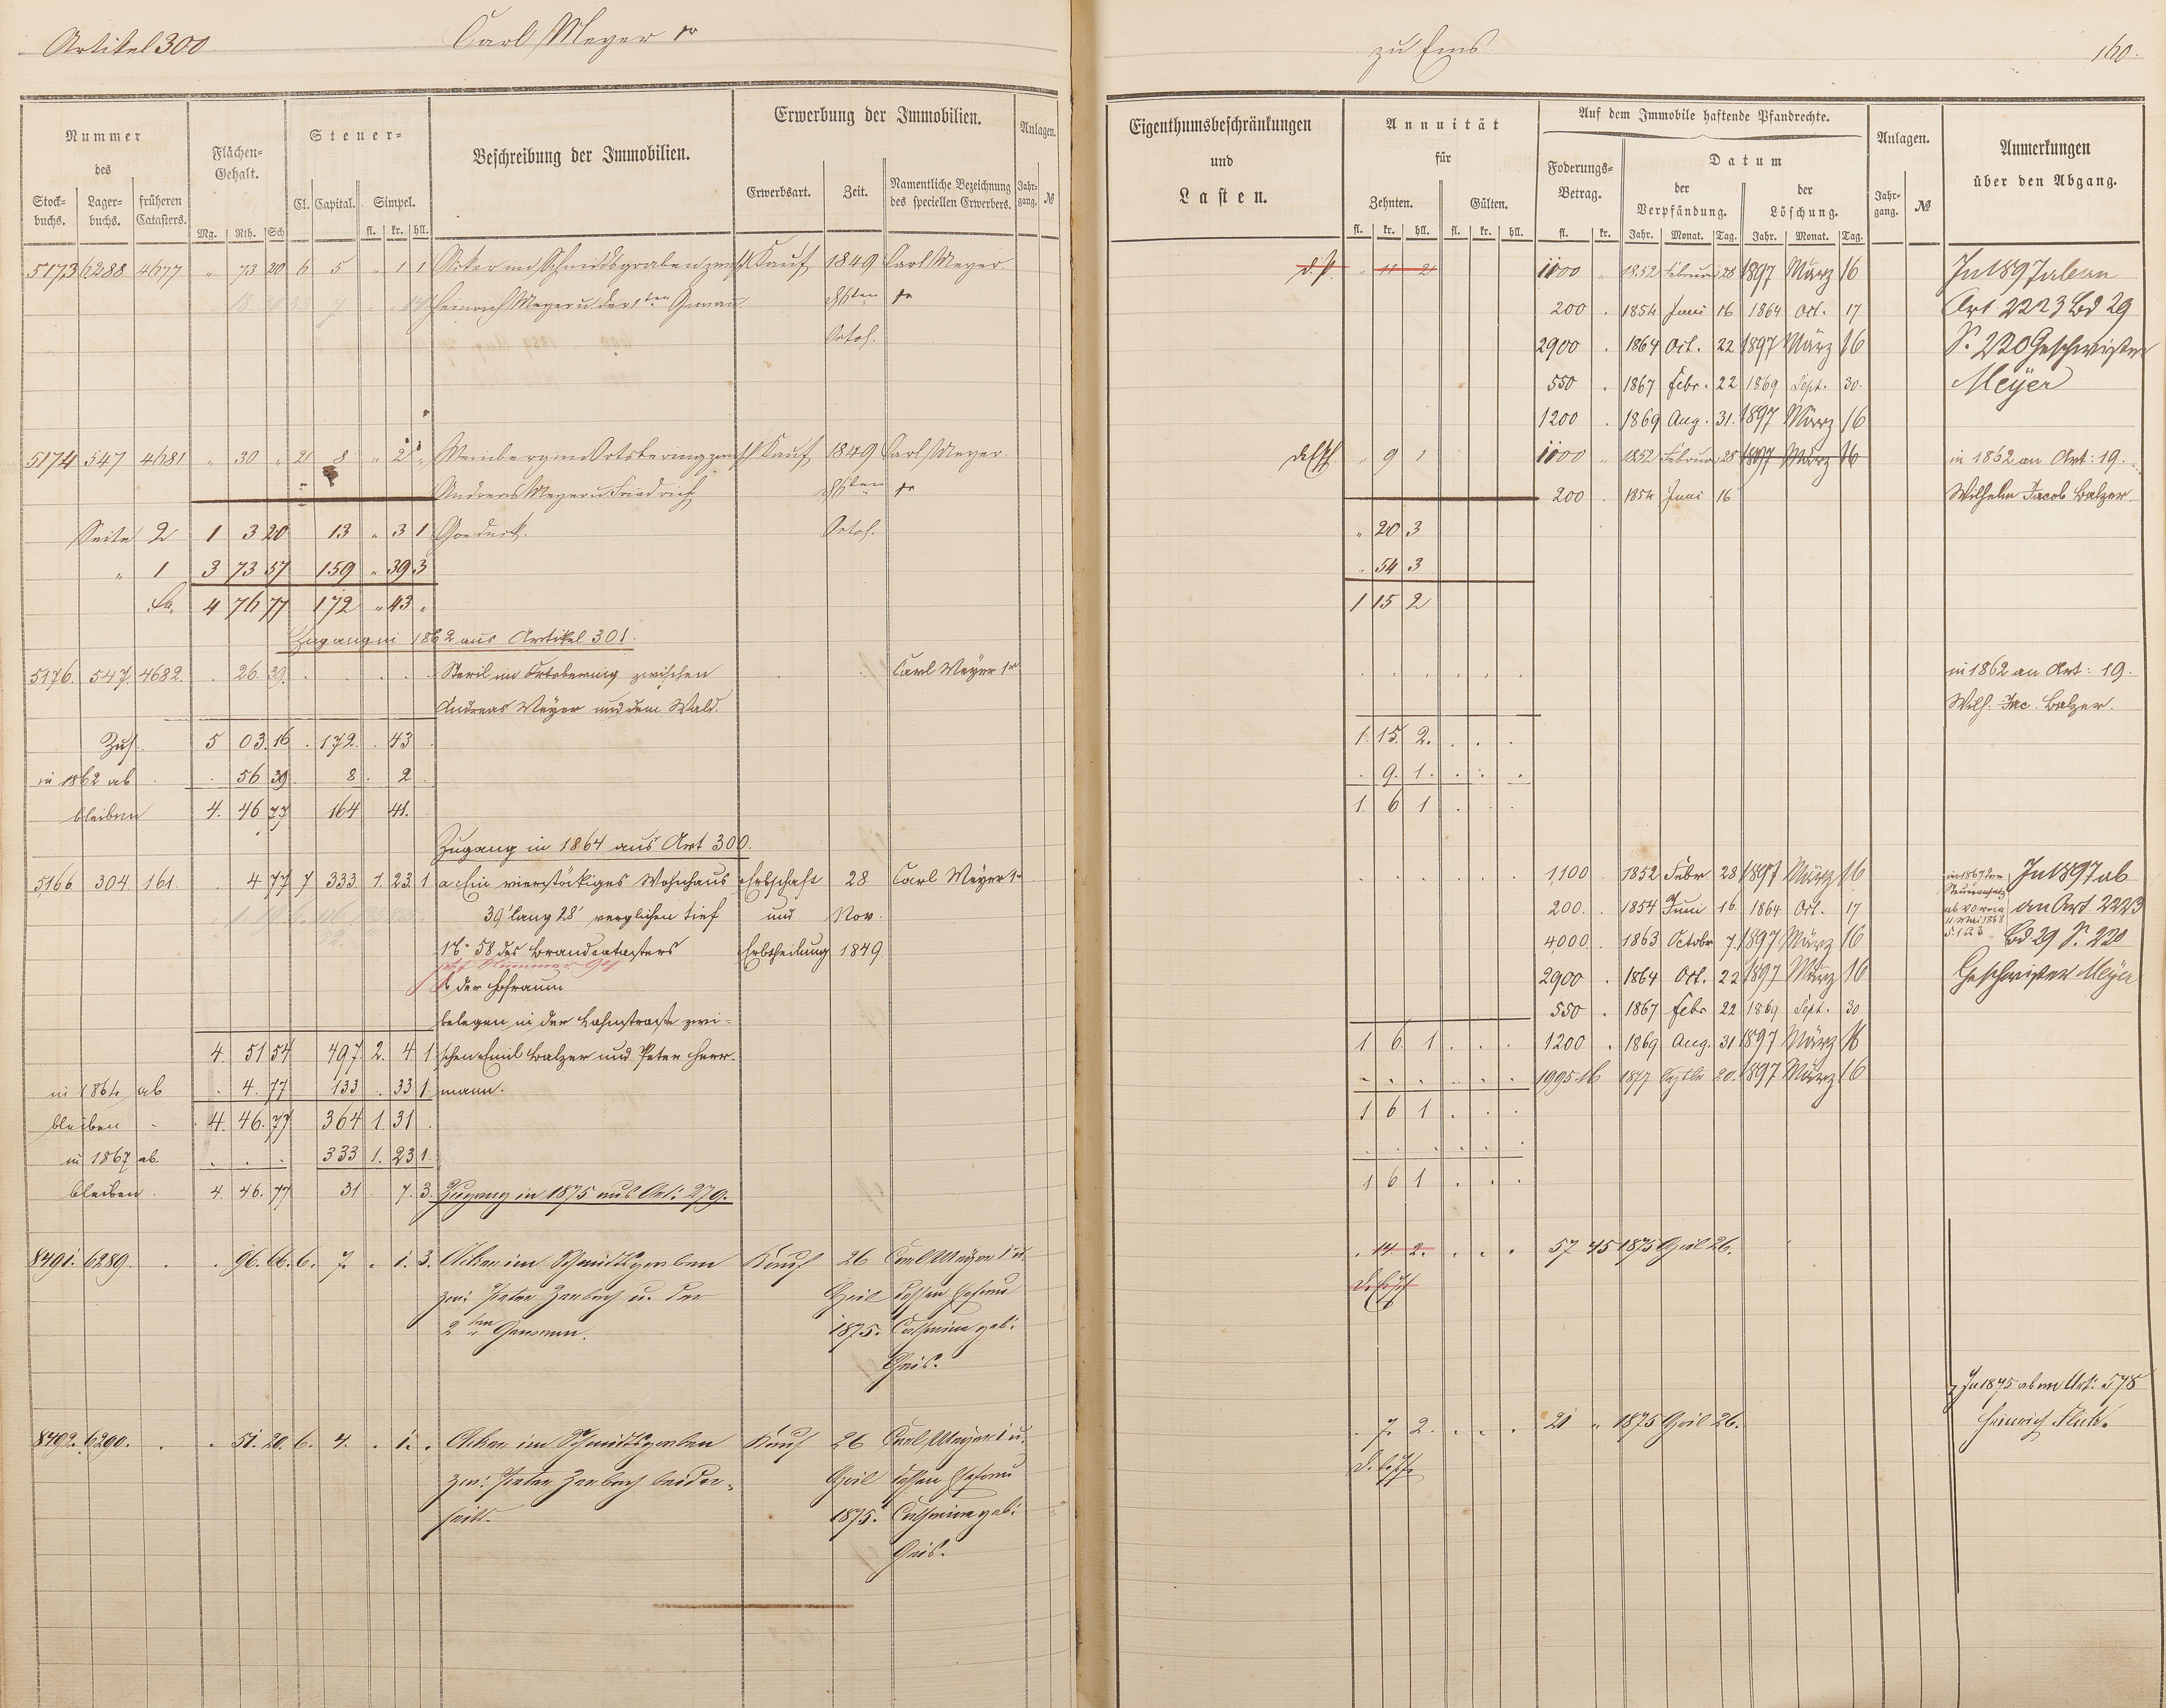 Artikel 300
Carl Meyer 1r
zu Ems
160.
Nummer
des
Stock-
buchs.
Lager-
buchs.
früheren
Catasters.
Flächen-
Gehalt.
Mg. Rth. Sch
Steuer-
Cl. Capital. Simpel.
fl. kr. hll.
Beschreibung der Immobilien.
Erwerbung der Immobilien.
Erwerbsart. Zeit.
Namentliche Bezeichnung
des speciellen Erwerbers.
Anlagen.
Jahr-
gang. №
Eigenthumsbeschränkungen
und
Lasten.
Annuität
für
Zehnten. Gülten.
fl. kr. hll. fl. kr. hll.
Auf dem Immobile haftende Pfandrechte.
Foderungs-
Betrag.
fl. kr.
Datum
der
Verpfändung.
der
Löschung.
Jahr. Monat. Tag. Jahr. Monat. Tag.
Anlagen.
Jahr-
gang. №
Anmerkungen
über den Abgang.
5173 6288 4677 " 73 20 6 5 " 1 1 Acker im Schmidtsgraben zwisch Kauf 1849 Carl Meyer " 11 2 1100 " 1852 Februar 28 1897 März 16 In 1897 ab an
Heinrich Meyer u. der 1ten Gewann 1r 200 . 1854 Juni 16 1864 Oct. 17 Art. 2223 Bd 29
2900 . 1864 Oct. 22 1897 März 16 S. 220 Geschwister
550 . 1867 Febr. 22 1869 Sept. 30. Meyer
1200 . 1869 Aug. 31. 1897 März 16
5174 547 4681 " 30 " 2 8 " 2 " Weinberg im Ortsbering zwisch Kauf 1849 Carl Meyer " 9 1 1100 " 1852 Februar 28 1897 März 16 in 1862 an Art: 19.
Andreas Meyer u. Friedrich 1r 200 . 1854 Juni 16 Wilhelm Jacob Balzer.
Seite 2 1 3 20 13 " 3 1 Goedeck. " 20 3
" 1 3 73 57 159 " 39 3 " 54 3
Sa. 4 76 77 172 " 43 " 1 15 2
Zugang in 1862 aus Artikel 301.
5176. 547. 4682. . 26 39. Steril im Ortsbering zwischen Carl Meyer 1r in 1862 an Art: 19.
Andreas Meyer und dem Wald. Wilh. Jac. Balzer.
Zus. 5 03. 16 . 172. . 43 . 1. 15. 2.
in 1862 ab . 56 39 8. 2 . 9. 1.
bleiben 4. 46 77 164 41. 1. 6 1
Zugang in 1864 aus Art 300.
5166 304. 161. . 4 77 7 333. 1. 23. 1 a. Ein vierstöckiges Wohnhaus Erbschaft 28 Carl Meyer 1r 1100 . 1852 Febr 28 1897 März 16 In 1897 ab
39' lang 28' verglichen tief und Nov. 200. . 1854 Juni 16. 1864 Oct. 17 an Art. 2223
№ 58 des Brandcatasters Erbtheilung 1849. 4000. . 1863 Octobr 7. 1897 März 16 Bd 29 S. 220
b der Hofraum 2900 . 1864 Oct. 22 1897 März 16 Geschwister Meyer
belegen in der Lahnstraße zwi- 550 . 1867 Febr 22 1869 Sept. 30
4. 51 54 497. 2. 4. 1 schen Emil Balzer und Peter Herr- 1 6. 1 1200 . 1869 Aug. 31 1897 März 16
in 1864 ab . 4. 77 133 . 33 1. mann. 1995 16 1877 20. 1897 März 16
bleiben 4. 46. 77 364 1. 31 . 1 6 1
in 1867 ab. 333 1. 23 1.
bleiben. 4. 46. 77 31 . 7. 3. Zugang in 1875 aus Art: 279. 1 6 1
8491. 6289. . . 96. 66. 6. 7. . 1. 3. Acker im Schmidtsgraben Kauf 26 Carl Meyer 1 u. . 14 2. 57 45 1875 April 26.
zw: Peter Zorbach u. der April dessen Ehefrau
2ten Gewann. 1875. Catharina geb:
Gris.
In 1875 ab an Art: 578
8492. 6290. . . 51. 20. 6. 4. . 1. . Acker im Schmidtsgraben Kauf 26 Carl Meyer 1 u. . 7. 2. 21 " 1875 April 26. Heinrich
zw: Peter Zorbach beider- April dessen Ehefrau
seits. 1875. Catharina geb:
Gris.